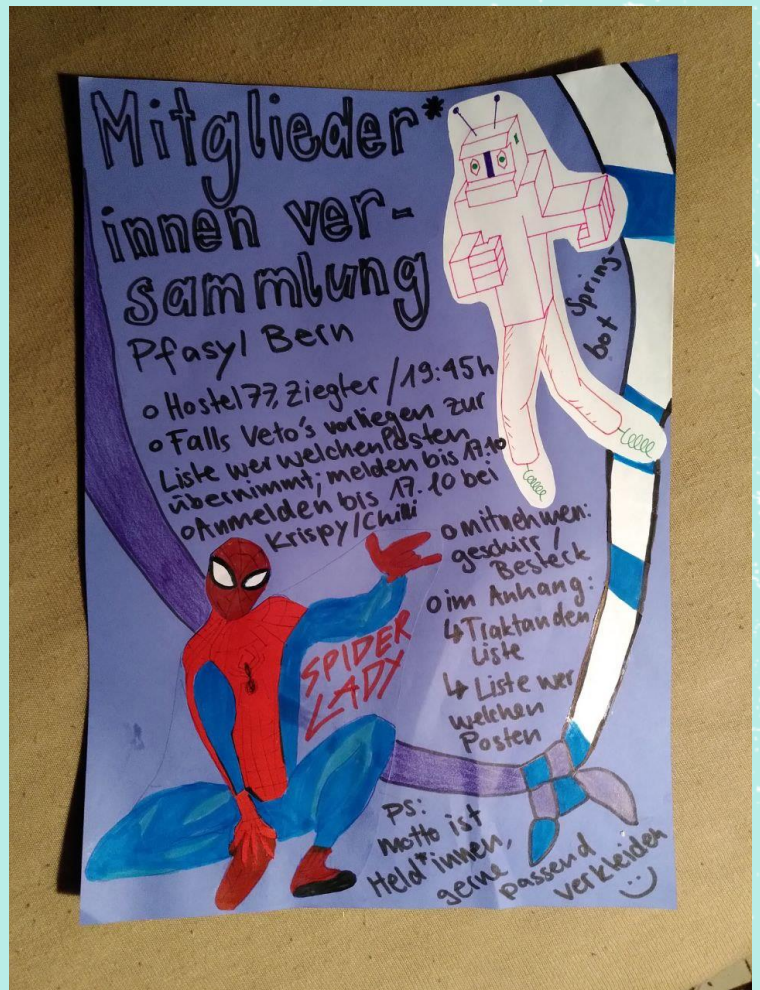 Mitglieder*
innen ver-
sammlung
Pfasyl Bern
o Hostel 77, Ziegler / 19:45h
o Falls Veto's vorliegen zur
Liste wer welchen Posten
übernimmt; melden bis 17.10
o Anmelden bis 17.10 bei
Krispy/Chilli
Spring-
bot
o mitnehmen:
geschirr /
Besteck
o im Anhang:
↳ Traktanden
liste
↳ Liste wer
welchen
Posten
SPIDER
LADY
PS:
Motto ist
Held*innen,
gerne passend verkleiden